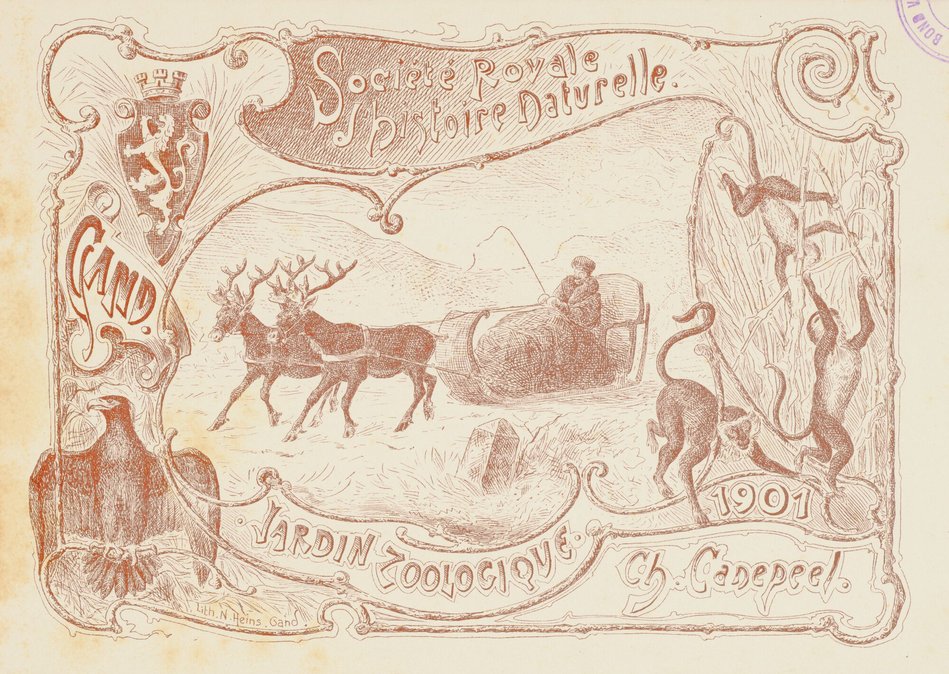 Société Royale
d'histoire Naturelle.
GAND.
JARDIN ZOOLOGIQUE.
1901
Ch. Canepeel.
Lith. N. Heins. Gand.
BOND V